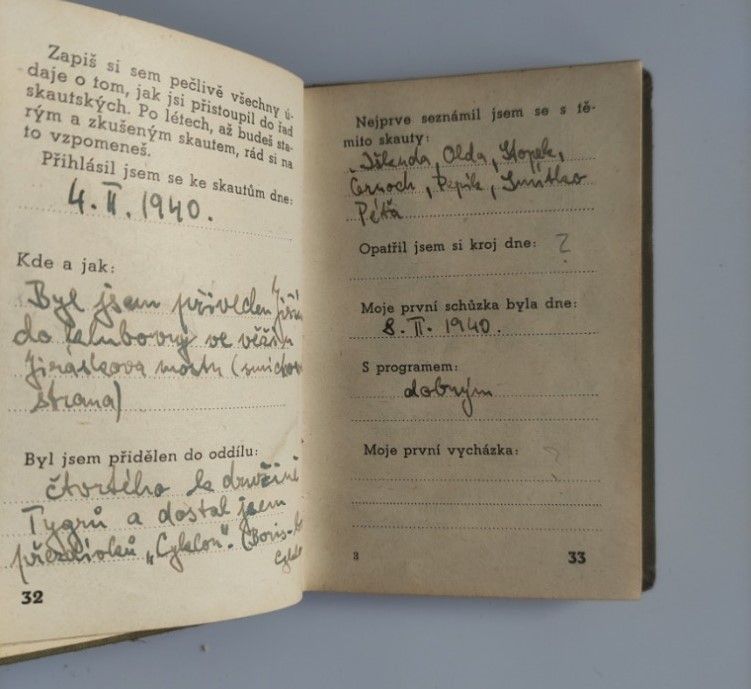 Zapiš si sem pečlivě všechny ú-
daje o tom, jak jsi přistoupil do řad
skautských. Po létech, až budeš sta-
rým a zkušeným skautem, rád si na
to vzpomeneš.
Přihlásil jsem se ke skautům dne:
4. II. 1940.
Kde a jak:
Byl jsem přiveden
do klubovny ve věži
Jiráskova mostu (smíchov
strana)
Byl jsem přidělen do oddílu:
čtvrtého k družině
Tygrů a dostal jsem
přezdívku „Cyklon". (Boris-
32
Nejprve seznámil jsem se s tě-
mito skauty:
Olda,
Černoch, Pepík, Smítko
Péťa
Opatřil jsem si kroj dne: ?
Moje první schůzka byla dne:
8. II. 1940.
S programem:
dobrým
Moje první vycházka: ?
3
33